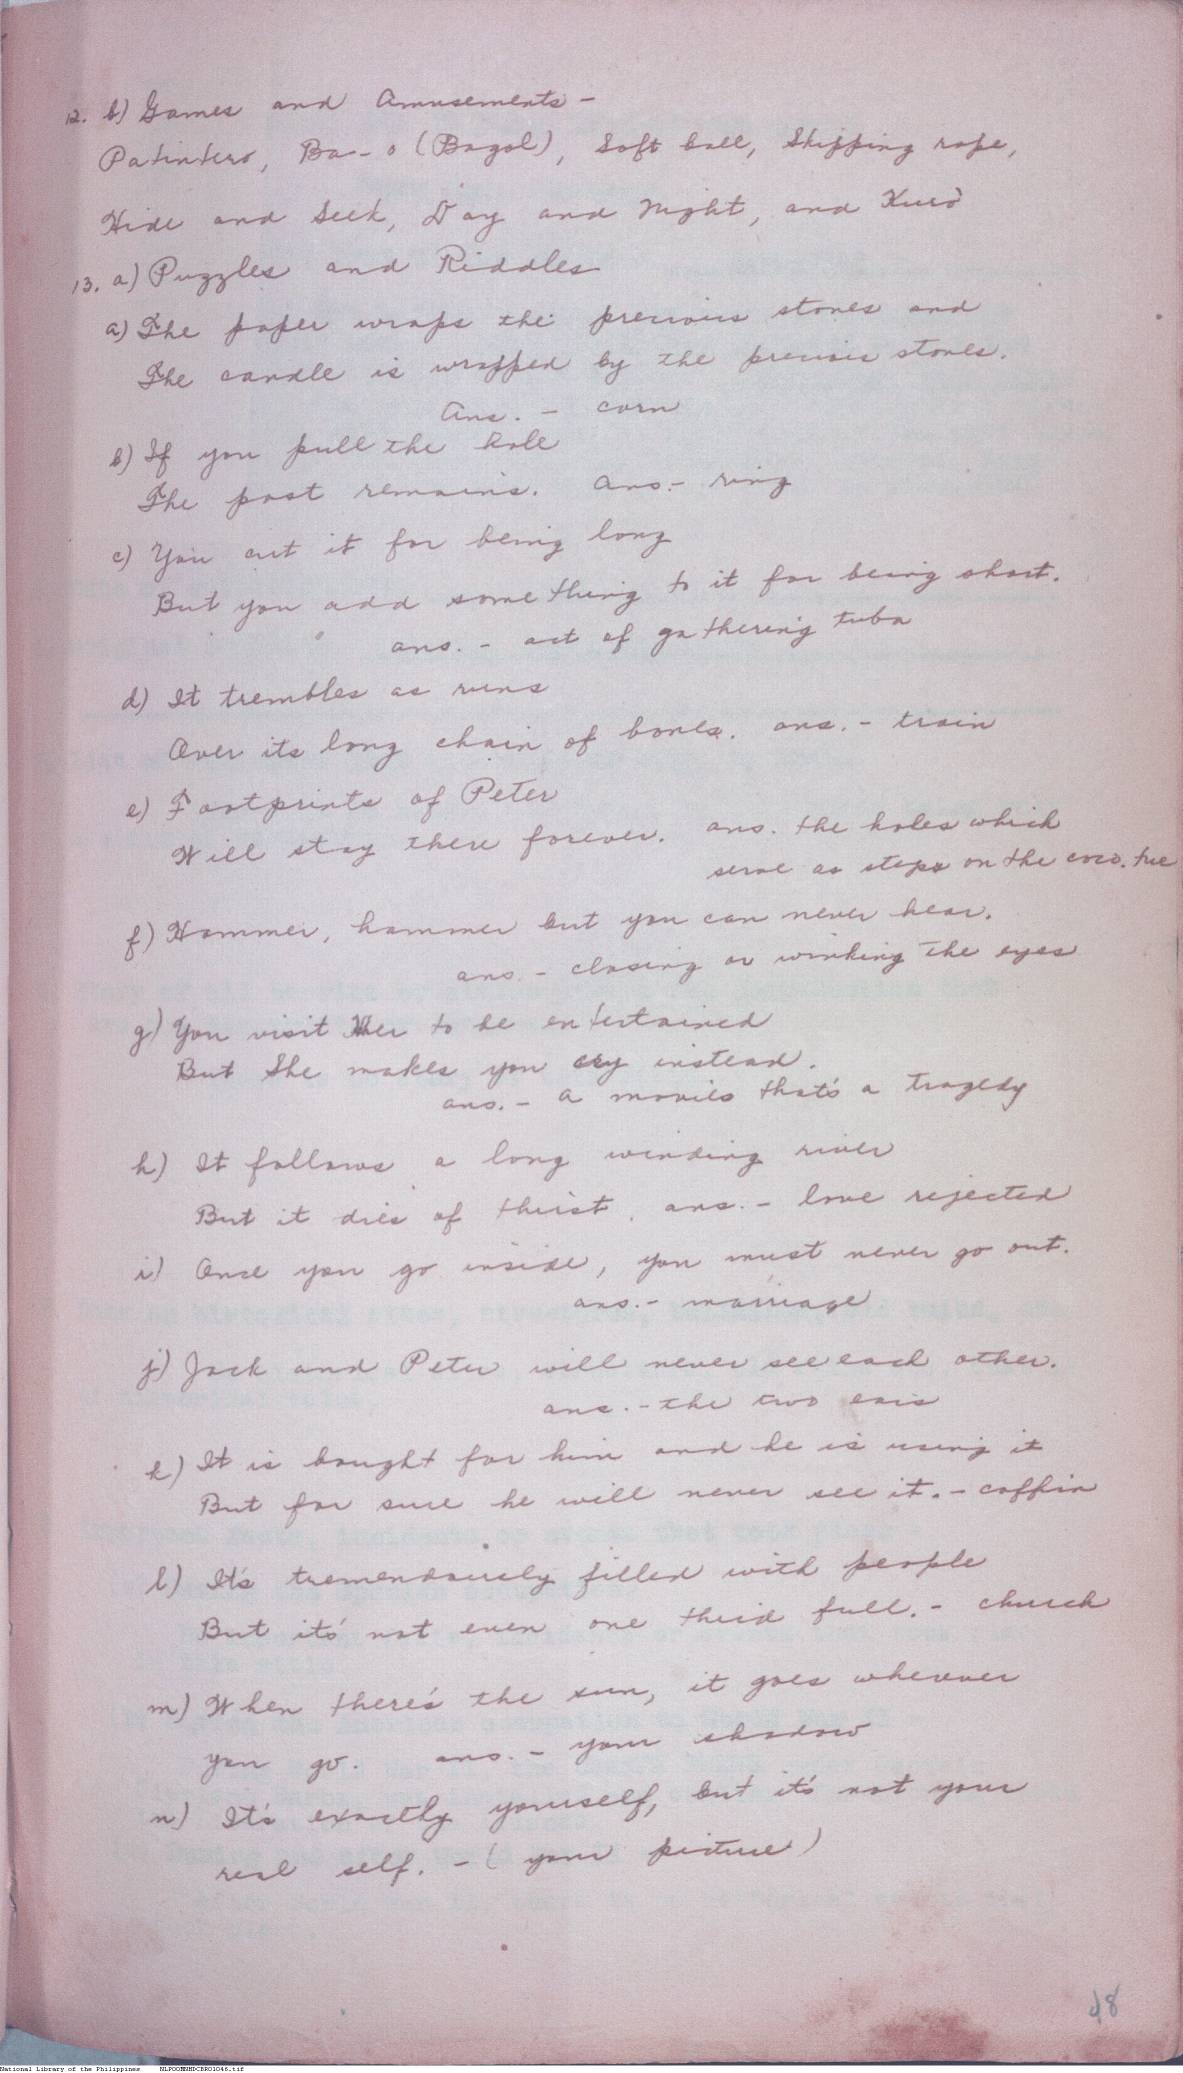 12. b) Games and Amusements -
Patintero, Ba-o (Bagol), Soft ball, Skipping rope,
Hide and Seek, Day and Night, and
13. a) Puzzles and Riddles
a) The paper wraps the precious stones and
The candle is wrapped by the precious stones.
Ans. - corn
b) If you pull the hole
The post remains. Ans. - ring
c) You cut it for being long
But you add something to it for being short.
ans. - act of gathering tuba
d) It trembles as runs
Over its long chain of bones. ans. - train
e) Footprints of Peter
Will stay there forever. ans. the holes which
serve as steps on the coco. tree
f) Hammer, hammer but you can never hear.
ans. - closing or winking the eyes
g) You visit Her to be entertained
But She makes you cry instead.
ans. - a movies that's a tragedy
h) It follows a long winding river
But it dies of thirst. ans. - love rejected
i) Once you go inside, you must never go out.
ans. - marriage
j) Jack and Peter will never see each other.
ans. - the two ears
k) It is bought for him and he is using it
But for sure he will never see it. - coffin
l) It's tremendously filled with people
But it's not even one third full. - church
m) When there's the sun, it goes wherever
you go. ans. - your shadow
n) It's exactly yourself, but it's not your
real self. - (your picture)
48
National Library of the Philippines NLPOOMNHDCBR01046.tif